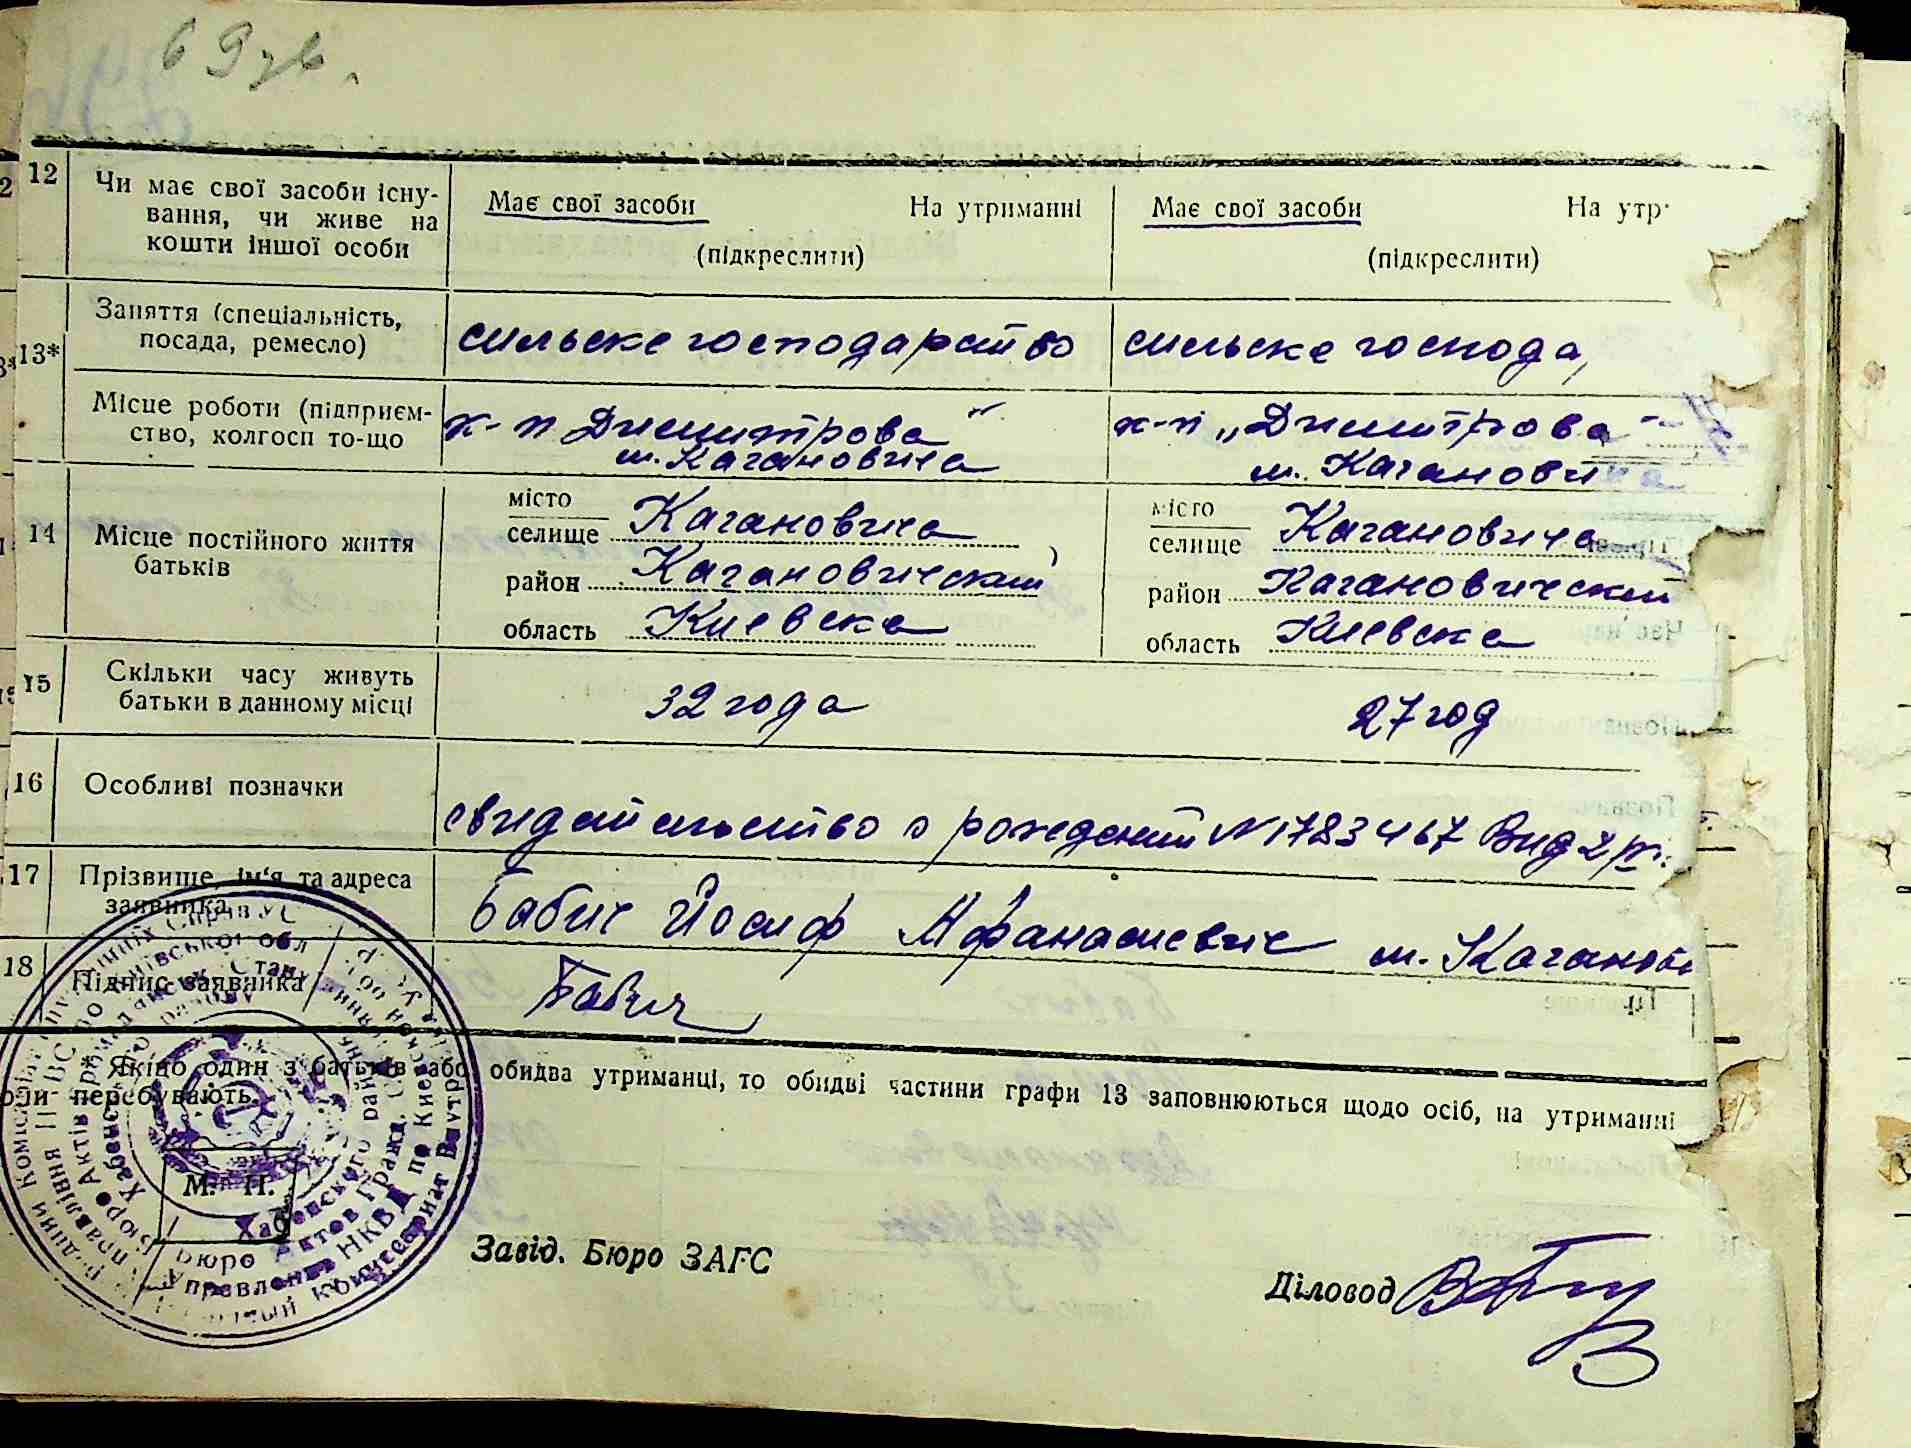 12 Чи має свої засоби існу-
вання, чи живе на
кошти іншої особи
Має свої засоби На утриманні
(підкреслити)
Має свої засоби На утр
(підкреслити)
13* Заняття (спеціальність,
посада, ремесло)
сильське господарство
сильське господа
Місце роботи (підприєм-
ство, колгосп то-що
к-п Димитрова"
м. Кагановича
к-п „Димитрова"
м. Кагановича
14 Місце постійного життя
батьків
місто
селище Кагановича
район Кагановический
область Киевска
місто
селище Кагановича
район Кагановический
область Киевска
15 Скільки часу живуть
батьки в данному місці
32 года
27 год
16 Особливі позначки
свидетельство о рождении N 1783467 Вид 2
17 Прізвище, ім'я та адреса
заявника
Бабич Йосиф Афанасиевич м. Каганови
18 Підпис заявника
Бабич
Якіцо один з батьків або обидва утриманці, то обидві частини графи 13 заповнюються щодо осіб, на утриманні
перебувають.
М. П.
Завід. Бюро ЗАГС
Діловод